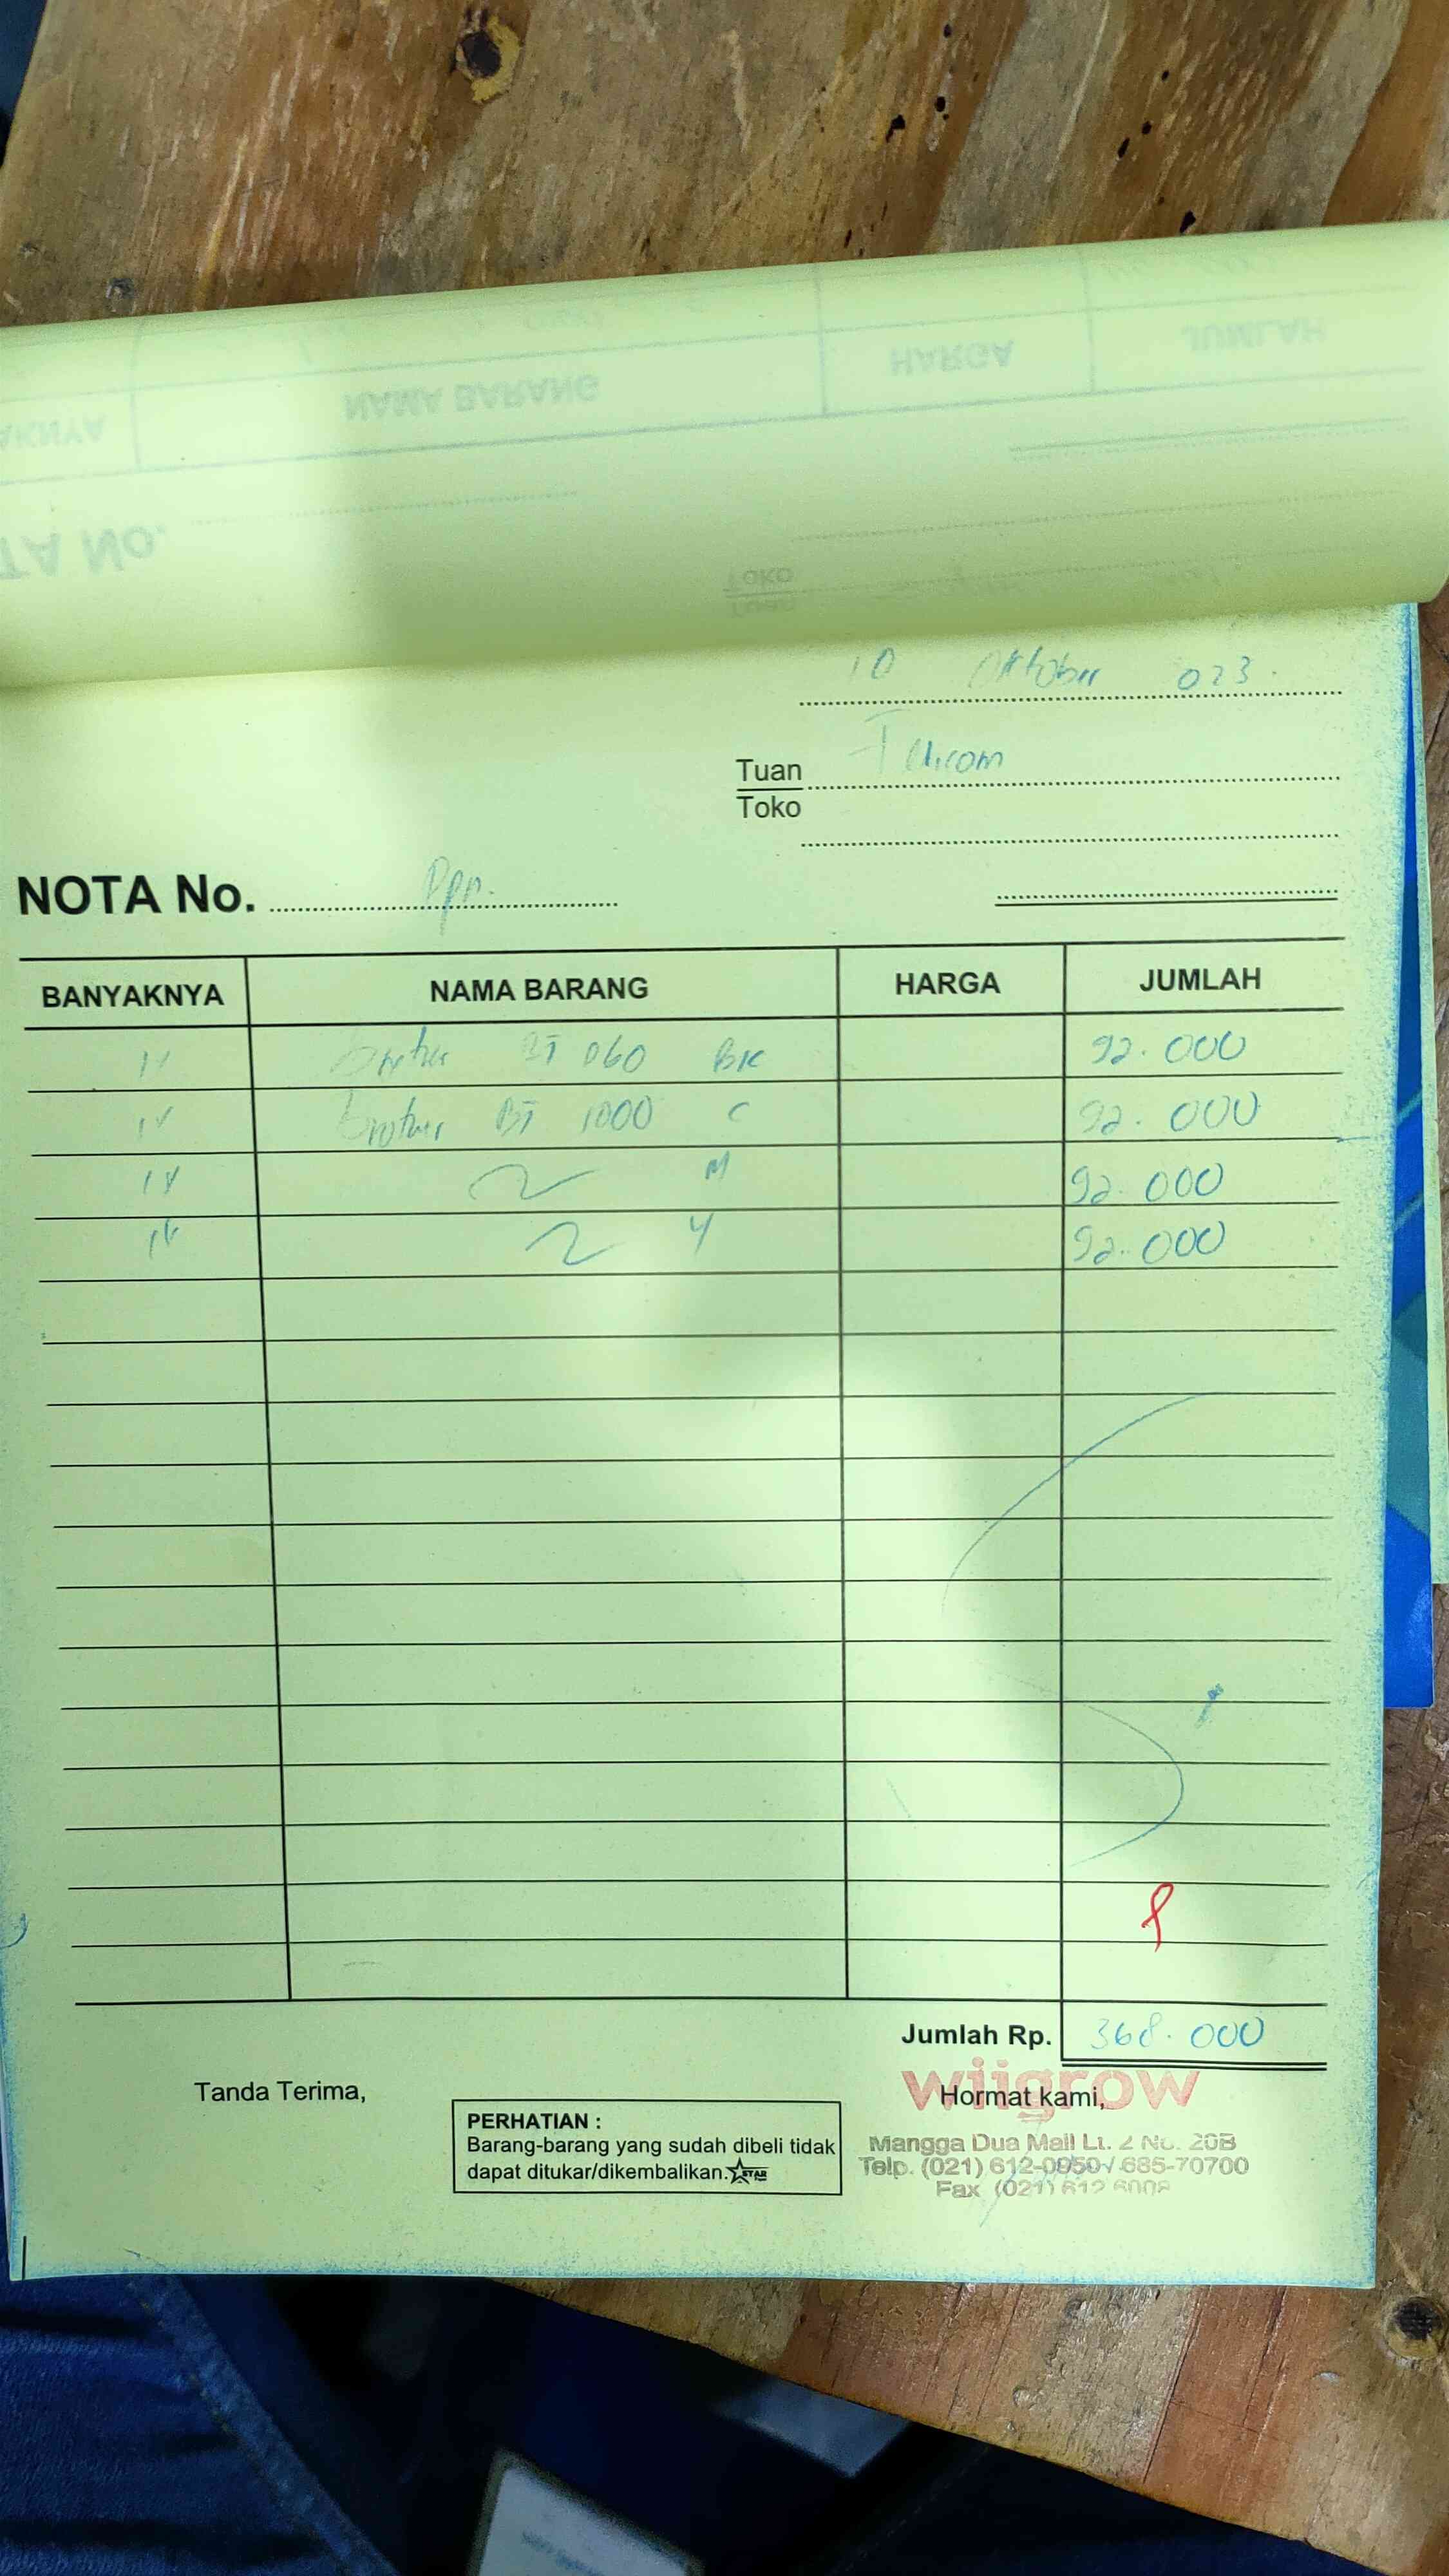 JUMLAH
HARGA
NAMA BARANG
AKNYA
TA No.
Toko
Tuan
10 Oktober 023.
Tuan
Toko
NOTA No. Ppn.
BANYAKNYA NAMA BARANG HARGA JUMLAH
BT 060 BK 92.000
Brother BT 1000 C 92.000
M 92.000
Y 92.000
Jumlah Rp. 368.000
Tanda Terima,
Hormat kami,
wiigrow
PERHATIAN :
Barang-barang yang sudah dibeli tidak
dapat ditukar/dikembalikan. STAR
Mangga Dua Mall Lt. 2 No. 20B
Telp. (021) 612-0950 / 685-70700
Fax (021) 612 6008